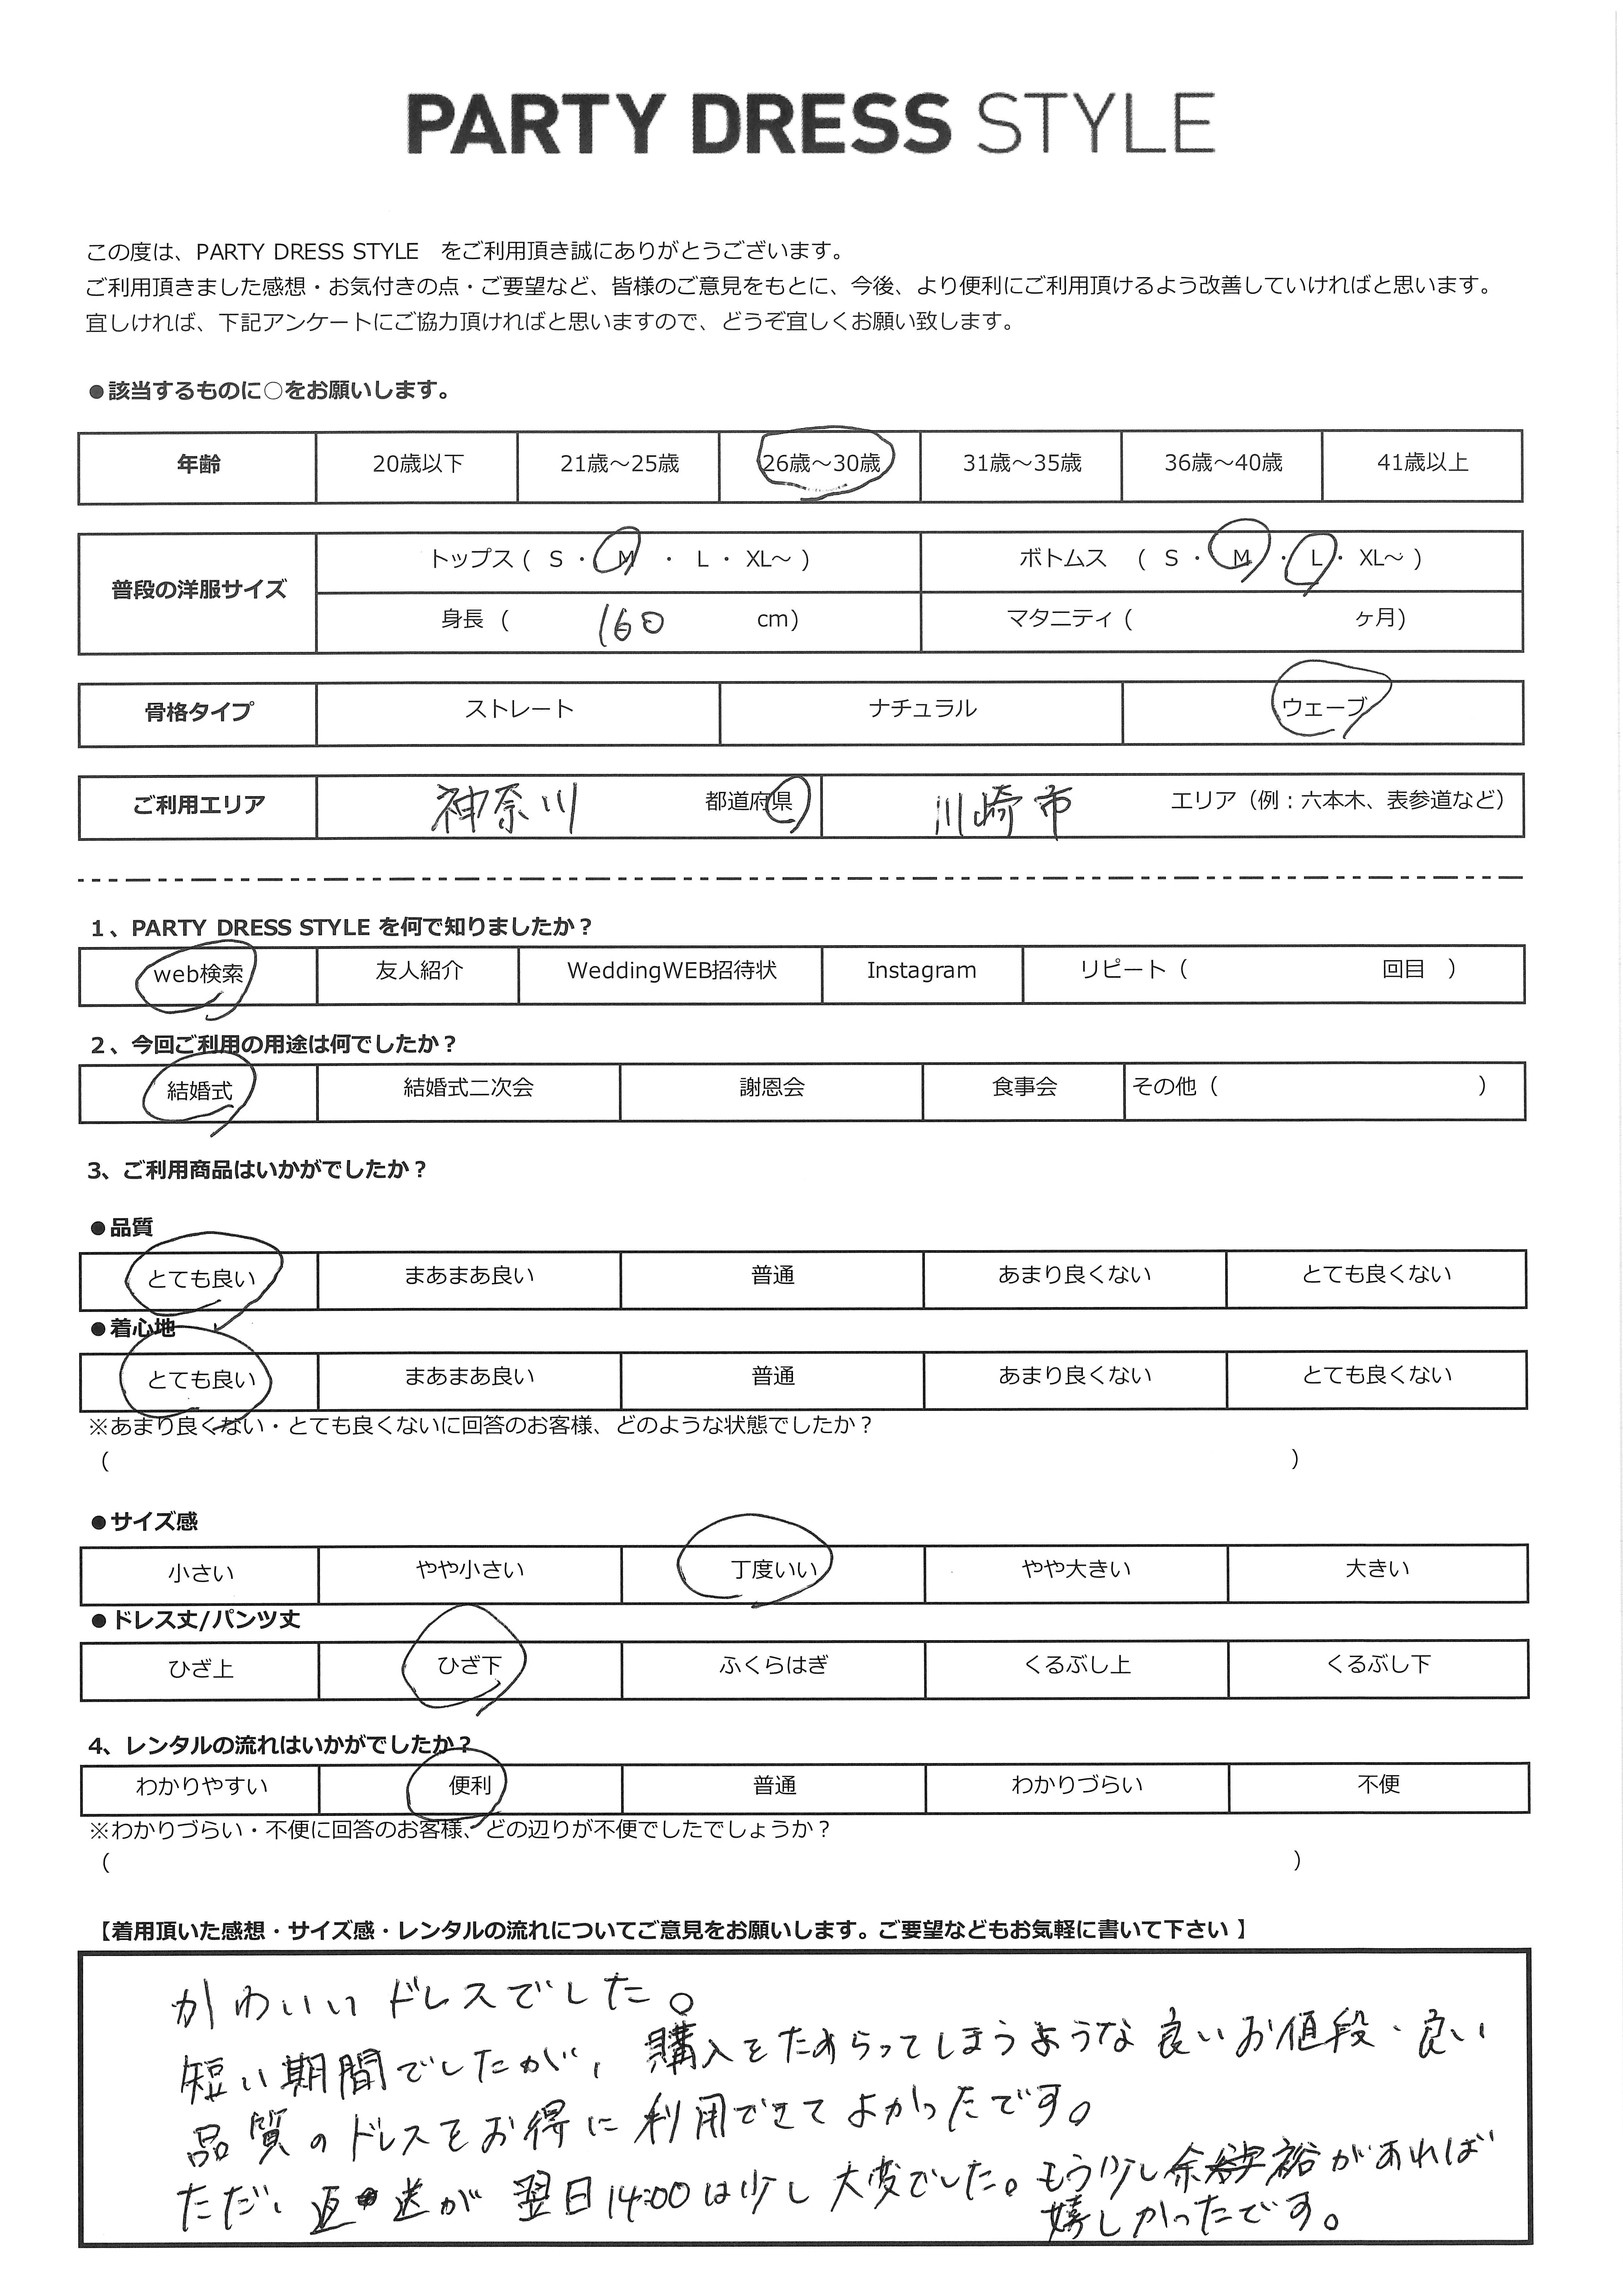 PARTY DRESS STYLE
この度は、PARTY DRESS STYLE　をご利用頂き誠にありがとうございます。
ご利用頂きました感想・お気付きの点・ご要望など、皆様のご意見をもとに、今後、より便利にご利用頂けるよう改善していければと思います。
宜しければ、下記アンケートにご協力頂ければと思いますので、どうぞ宜しくお願い致します。
●該当するものに○をお願いします。
年齢 20歳以下 21歳～25歳 26歳～30歳 31歳～35歳 36歳～40歳 41歳以上
普段の洋服サイズ
トップス ( S ・ M ・ L ・ XL～ ) ボトムス ( S ・ M ・ L ・ XL～ )
身長 ( 160 cm) マタニティ ( ヶ月)
骨格タイプ ストレート ナチュラル ウェーブ
ご利用エリア 神奈川 都道府県 川崎市 エリア（例：六本木、表参道など）
1、PARTY DRESS STYLE を何で知りましたか？
web検索 友人紹介 WeddingWEB招待状 Instagram リピート（ 回目 ）
2、今回ご利用の用途は何でしたか？
結婚式 結婚式二次会 謝恩会 食事会 その他（ ）
3、ご利用商品はいかがでしたか？
●品質
とても良い まあまあ良い 普通 あまり良くない とても良くない
●着心地
とても良い まあまあ良い 普通 あまり良くない とても良くない
※あまり良くない・とても良くないに回答のお客様、どのような状態でしたか？
（ ）
●サイズ感
小さい やや小さい 丁度いい やや大きい 大きい
●ドレス丈/パンツ丈
ひざ上 ひざ下 ふくらはぎ くるぶし上 くるぶし下
4、レンタルの流れはいかがでしたか？
わかりやすい 便利 普通 わかりづらい 不便
※わかりづらい・不便に回答のお客様、どの辺りが不便でしたでしょうか？
（ ）
【着用頂いた感想・サイズ感・レンタルの流れについてご意見をお願いします。ご要望などもお気軽に書いて下さい 】
かわいいドレスでした。
短い期間でしたが、購入をためらってしまうような良いお値段・良い
品質のドレスをお得に利用できてよかったです。
ただ、返送が翌日14:00は少し大変でした。もう少し余裕があれば
嬉しかったです。